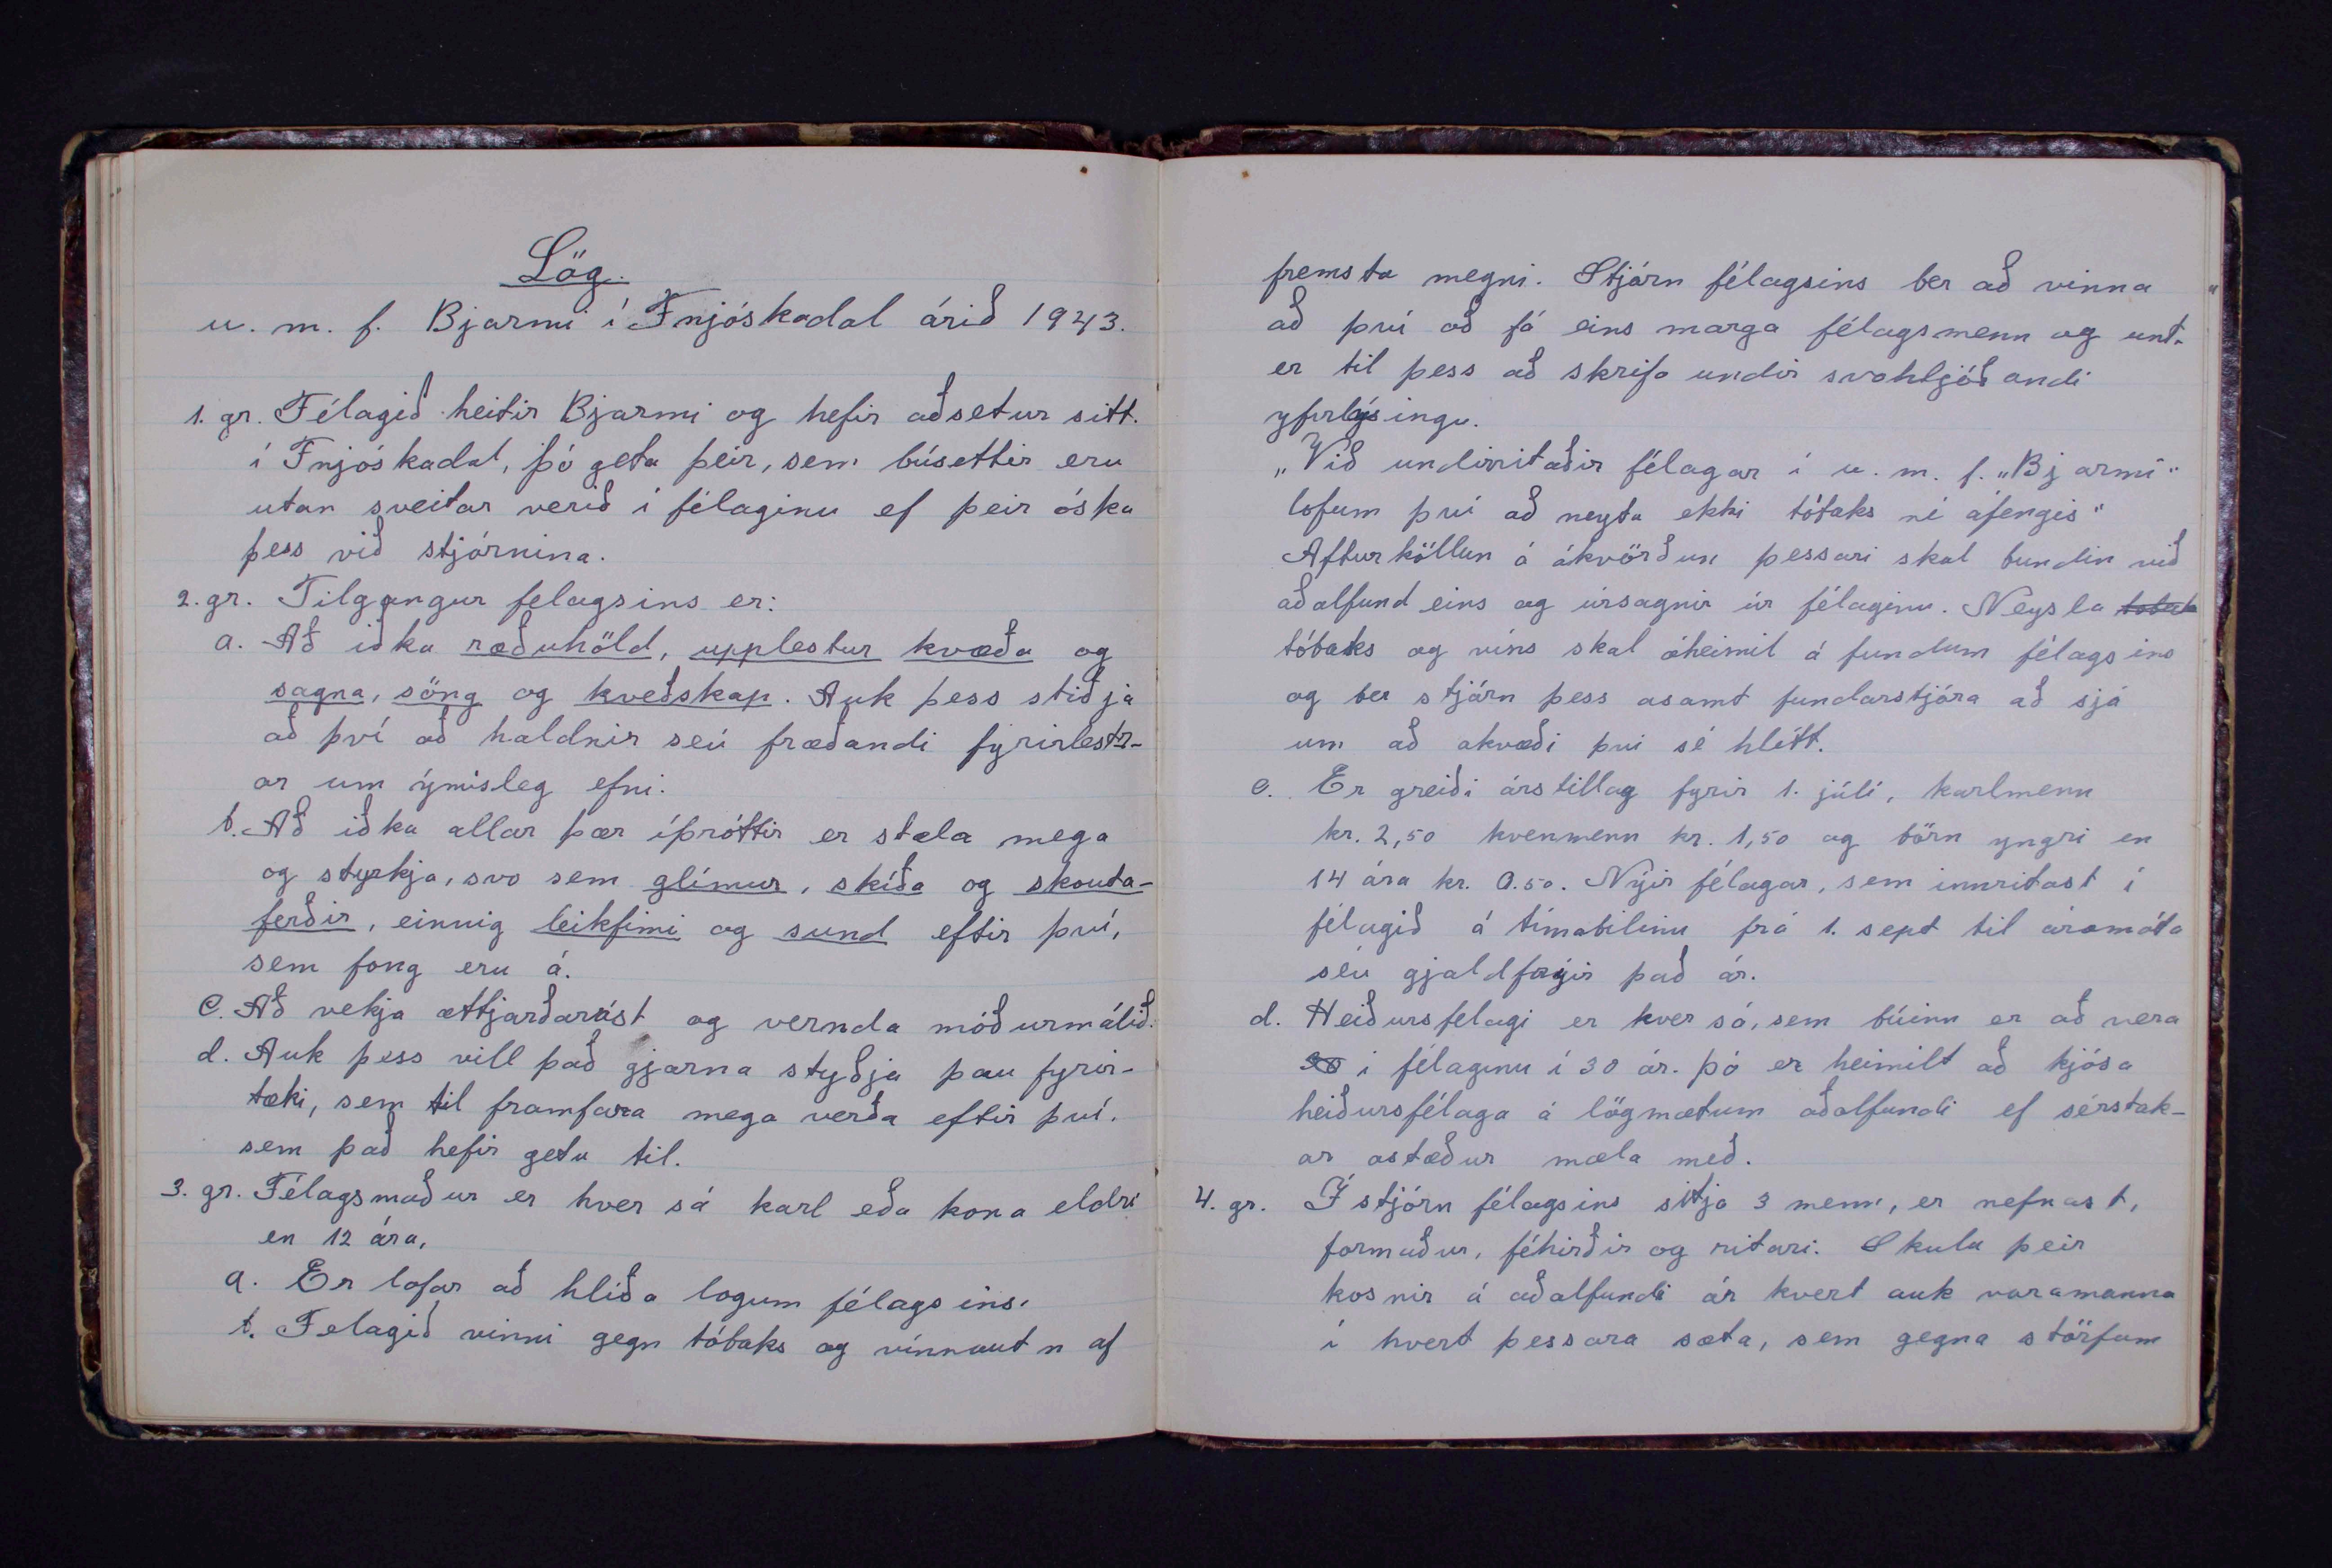 Lög.
u. m. f. Bjarmi í Fnjóskadal árið 1943.
1. gr. Félagið heitir Bjarmi og hefir aðsetur sitt.
í Fnjóskadal, þó geta þeir, sem búsettir eru
utan sveitar verið í félaginu ef þeir óska
þess við stjórnina.
2. gr. Tilgangur felagsins er:
a. Að iðka ræðuhöld, upplestur kvæða og
sagna, söng og kveðskap. Auk þess stiðja
að því að haldnir seú fræðandi fyrirlestr-
ar um ýmisleg efni.
b. Að iðka allar þær íþróttir er stæla mega
og styrkja, svo sem glímur, skíða og skauta-
ferðir, einnig leikfimi og sund eftir því,
sem fong eru á.
C. Að vekja ættjarðarást og vernda móðurmálið.
d. Auk þess vill það gjarna styðja þau fyrir-
tæki, sem til framfara mega verða eftir því.
sem það hefir getu til.
3. gr. Félagsmaður er hver sá karl eða kona eldri
en 12 ára,
a. Er lofar að hlíða logum félagsins.
b. Felagið vinni gegn tóbaks og vínnautn af
fremsta megni. Stjórn félagsins ber að vinna
að því að fá eins marga félagsmenn og unt.
er til þess að skrifa undir svohljóðandi
yfirlýsingu.
„Við undirritaðir félagar í u. m. f. „Bjarmi"
lofum því að neyta ekki tóbaks né áfengis"
Afturköllun á ákvörðun þessari skal bundin við
aðalfund eins og úrsagnir úr félaginu. Neysla tobak
tóbaks og víns skal óheimil á fundum félagsins
og ber stjórn þess asamt fundarstjóra að sjá
um að akvæði því sé hlítt.
c. Er greiði árstillag fyrir 1. júlí, karlmenn
kr. 2,50 kvenmenn kr. 1,50 og börn yngri en
14 ára kr. 0.50. Nýir félagar, sem innritast í
félagið á tímabilinu frá 1. sept til áramóta
séu gjaldfrýir það ár.
d. Heiðursfelagi er hver só, sem búinn er að vera
30 í félaginu í 30 ár. þó er heimilt að kjósa
heiðursfélaga á lögmætum aðalfundi ef sérstak-
ar astæður mæla með.
4. gr. Í stjórn félagsins sitja 3 menn, er nefnast,
formaður, féhirðir og ritari. Skulu þeir
kosnir á aðalfundi ár hvert auk varamanna
í hvert þessara sæta, sem gegna störfum